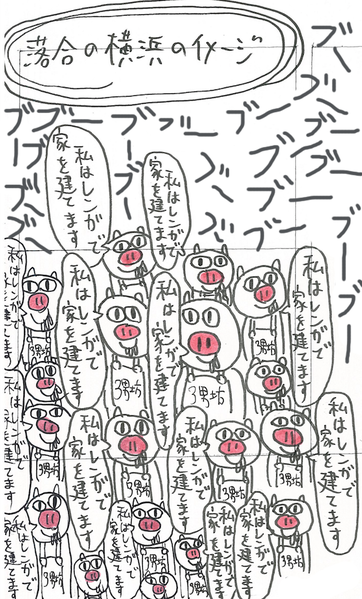 落合の横浜のイメージ
ブー
ブー
ブー
ブー
ブー
ブー
ブー
ブー
ブー
ブー
ブー
ブー
ブー
私はレンガで
家を建てます
私はレンガで
家を建てます
私はレンガで
家を建てます
私はレンガで
家を建てます
私はレンガで
家を建てます
私はレンガで
家を建てます
私はレンガで
家を建てます
私はレンガで
家を建てます
私はレンガで
家を建てます
私はレンガで
家を建てます
私はレンガで
家を建てます
私はレンガで
家を建てます
私はレンガで
家を建てます
私はレンガで
家を建てます
私はレンガで
家を建てます
3男坊
3男坊
3男坊
3男坊
3男坊
3男坊
3男坊
3男坊
3男坊
3男坊